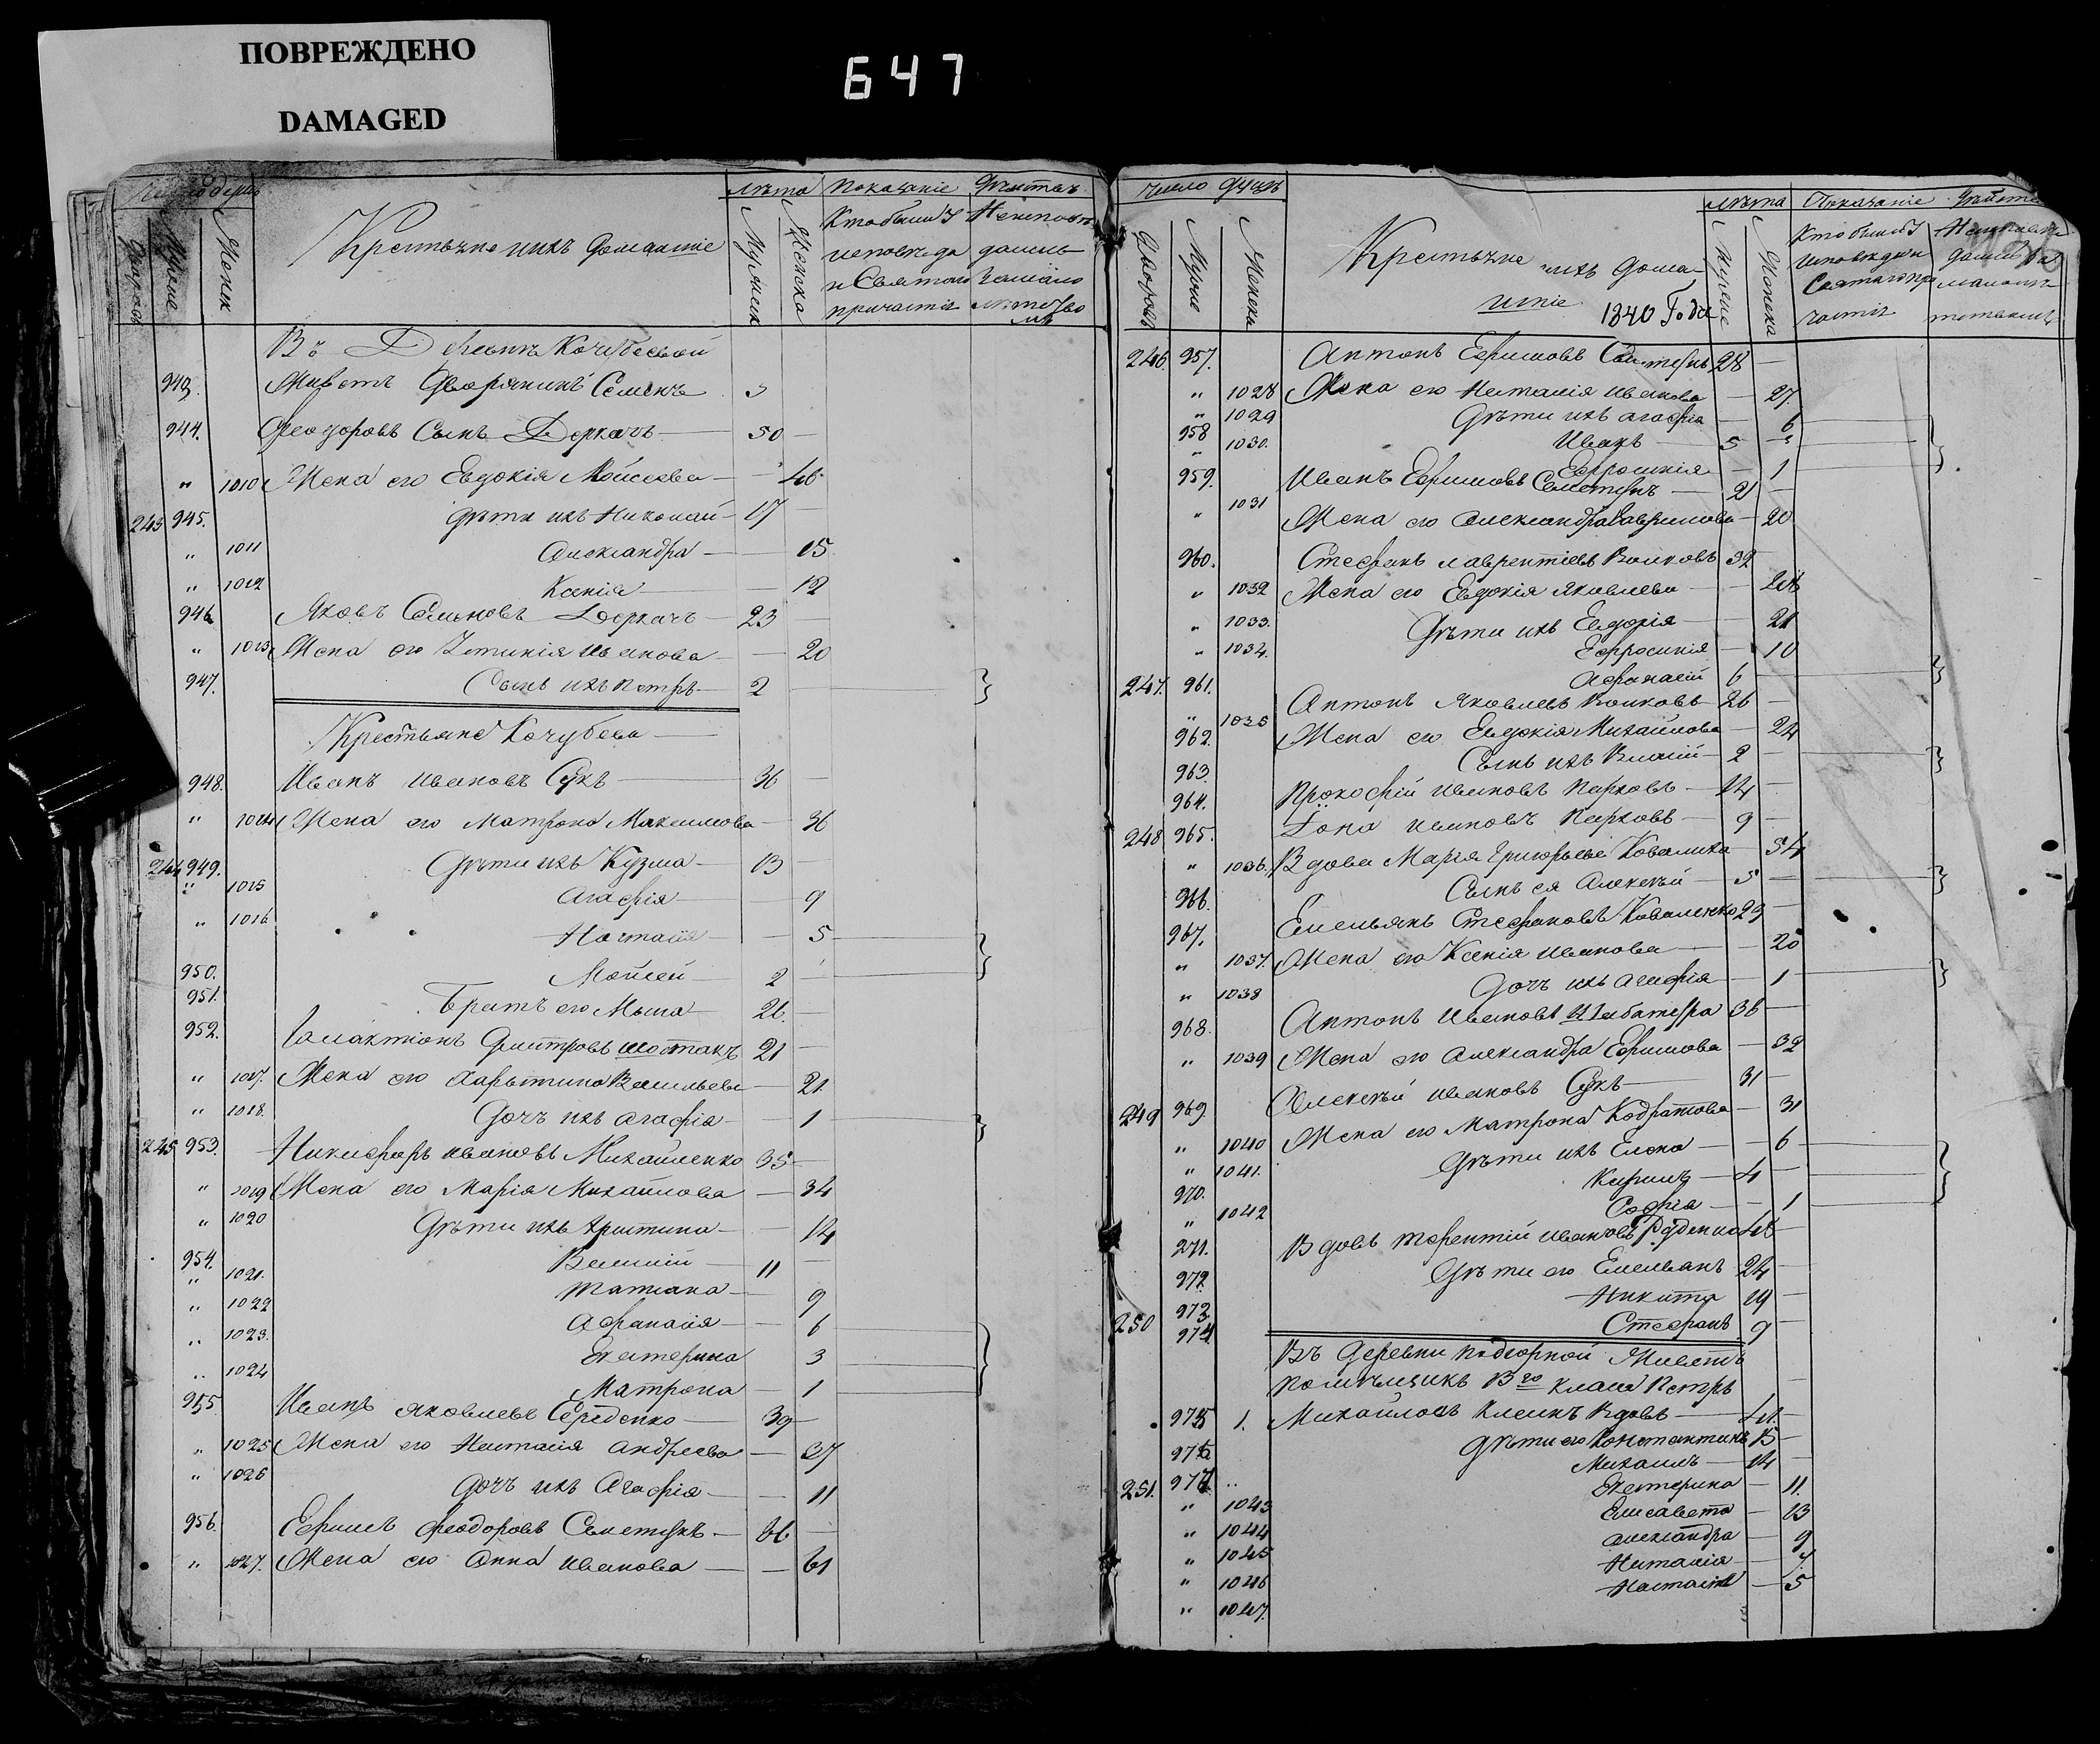 ПОВРЕЖДЕНО
DAMAGED
647
Число душъ
Дворовъ
Мужс
Женск
Крестьяне ихъ домашніе
Лѣта
Мужеск
Женска
Показаніе Дѣйства
Кто былъ У
исповѣда
и Святаго
причастія
Въ Деревнѣ Кочубеевой
943. Живетъ Дворянинъ Семенъ
944. Феодоровъ Сынъ Деркачъ 50
" 1010 Жена его Евдокія Мойсеева 46
243 945. Дѣти ихъ Николай 17
" 1011 Александра 15
" 1012 Ксенія 12
946 Яковъ Семеновъ Деркачъ 23
" 1013 Жена его Устинія Иванова 20
947. Сынъ ихъ Петръ 2
Крестьяне Кочубева
948. Иванъ Ивановъ Сукъ 36
" 1014 Жена его Матрона Максимова 36
244 949. Дѣти ихъ Кузма 13
" 1015 Агафія 9
" 1016 Настасія 5
950. Мойсей 2
951. Братъ его Мына 26
952. Галактіонъ Дмитровъ Шостакъ 21
" 1017. Жена его Харытина Васильева 21
" 1018. Дочъ ихъ Агафія 1
245 953. Никифоръ Ивановъ Михайленко 35
" 1019 Жена его Марія Михайлова 34
" 1020 Дѣти ихъ Христина 14
954. Василій 11
" 1021. Татіана 9
" 1022 Афанасія 6
" 1023. Екатерина 3
" 1024 Матрона 1
955. Иванъ Яковлевъ Середенко 39
" 1025 Жена его Настасія Андреева 37
" 1026 Дочъ ихъ Агафія 11
956. Ефимъ Феодоровъ Семетунъ 66
" 1027. Жена его Анна Иванова 61
Число душъ
Дворовъ
Мужс
Женска
Крестьяне ихъ дома-
шніе 1840 Года
Лѣта
Женска
Показаніе
Кто былъ У
исповѣди и
Святаго при
частія
246. 957. Антонъ Ефимовъ Семетунъ 28
" 1028 Жена его Наталія Иванова 27
" 1029 Дѣти ихъ Агафія 6
958 Иванъ 5
" 1030. Ефросинія 1
959. Иванъ Ефимовъ Семетунъ 21
" 1031 Жена его Александра Гаврилова 20
960. Стефанъ Лаврентіевъ Волковъ 32
" 1032 Жена его Евдокія Яковлева
" 1033. Дѣти ихъ Евдокія 21
" 1034. Ефросинія 10
247. 961. Афанасій 6
Антонъ Яковлевъ Волковъ 26
" 1035 962. Жена его Евдокія Михайлова 24
963. Сынъ ихъ Василій 2
964. Прокофій Ивановъ Парковъ 14
248 965. Іона Ивановъ Парковъ 9
" 1036. Вдова Марія Григорьева Ковалиха 54
966. Сынъ ея Алексѣй 5
967. Емельянъ Стефановъ Коваленко 29
" 1037. Жена его Ксенія Иванова 20
" 1038 Дочъ ихъ Агафія 1
968. Антонъ Ивановъ Шабатура 36
" 1039 Жена его Александра Ефимова 32
249 969. Алексѣй Ивановъ Сукъ 31
" 1040 Жена его Матрона Кодратова 31
" 1041. Дѣти ихъ Елена 6
970. Кирилъ 4
" 1042 Софія 1
271. Вдовъ Терентій Ивановъ
972. Дѣти его Емельянъ 24
973 Никита 19
250 974 Стефанъ 9
Въ Деревни Подгорной Живетъ
Помѣщикъ 8го класа Петръ
975 1. Михайловъ Вдовъ
976 Дѣти его Константинъ 15
251. 977. Михаилъ 14
" 1043 Екатерина 11.
" 1044 Елисавета 13
" 1045 Александра 9
" 1046 Наталія 7
" 1047. Настасія 5